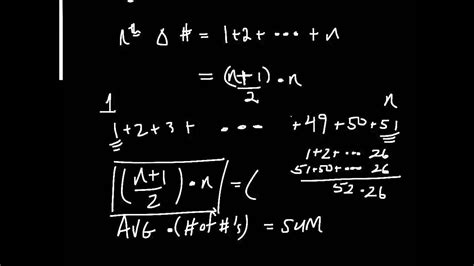 nth Δ # = 1+2+ ··· + n
= (n+1)/2 · n
1 n
1+2+3+ ··· +49+50+51
1+2+ ··· 26
51+50+ ··· 26
52·26
((n+1)/2) · n = (
AVG · (# of #'s) = SUM